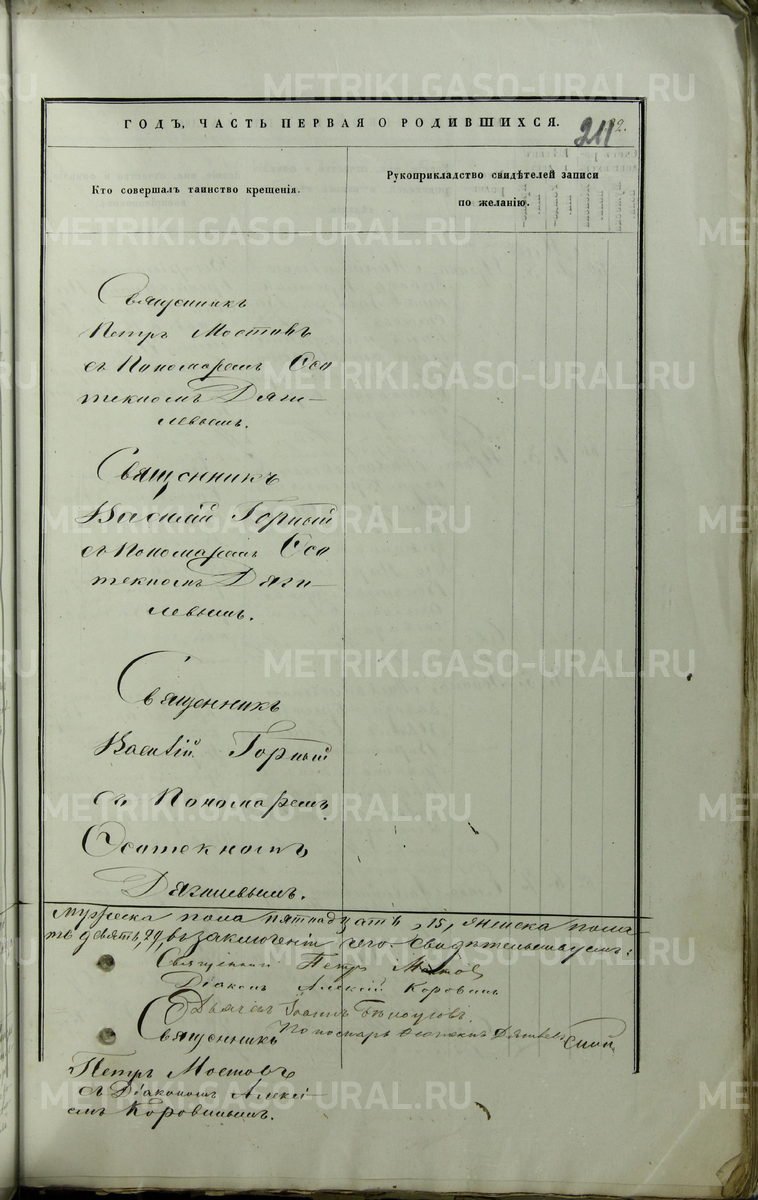 METRIKI.GASO-URAL.RU
ГОДЪ, ЧАСТЬ ПЕРВАЯ О РОДИВШИХСЯ.
211
Кто совершалъ таинство крещенія.
Рукоприкладство свидѣтелей записи
по желанію.
Священникъ
Петръ Мостовъ
съ Пономаремъ Ѳео
текномъ Дяги-
левымъ.
Священникъ
Василій Горный
съ Пономаремъ Ѳео
текномъ Дяги-
левымъ.
Священникъ
Василій Горный
съ Пономаремъ
Ѳеотекномъ
Дягилевымъ.
мужеска пола пятнадцать, 15, женска пола
девять, въ заключеніи чего свидѣтельствуемъ:
Священникъ Петръ Мостовъ
Діаконъ Алексій Коровинъ
Дьячекъ Іоаннъ Бѣлоусовъ
Пономарь Ѳеотекнъ
Священникъ
Петръ Мостовъ
съ Діакономъ Алексі-
емъ Коровинымъ.